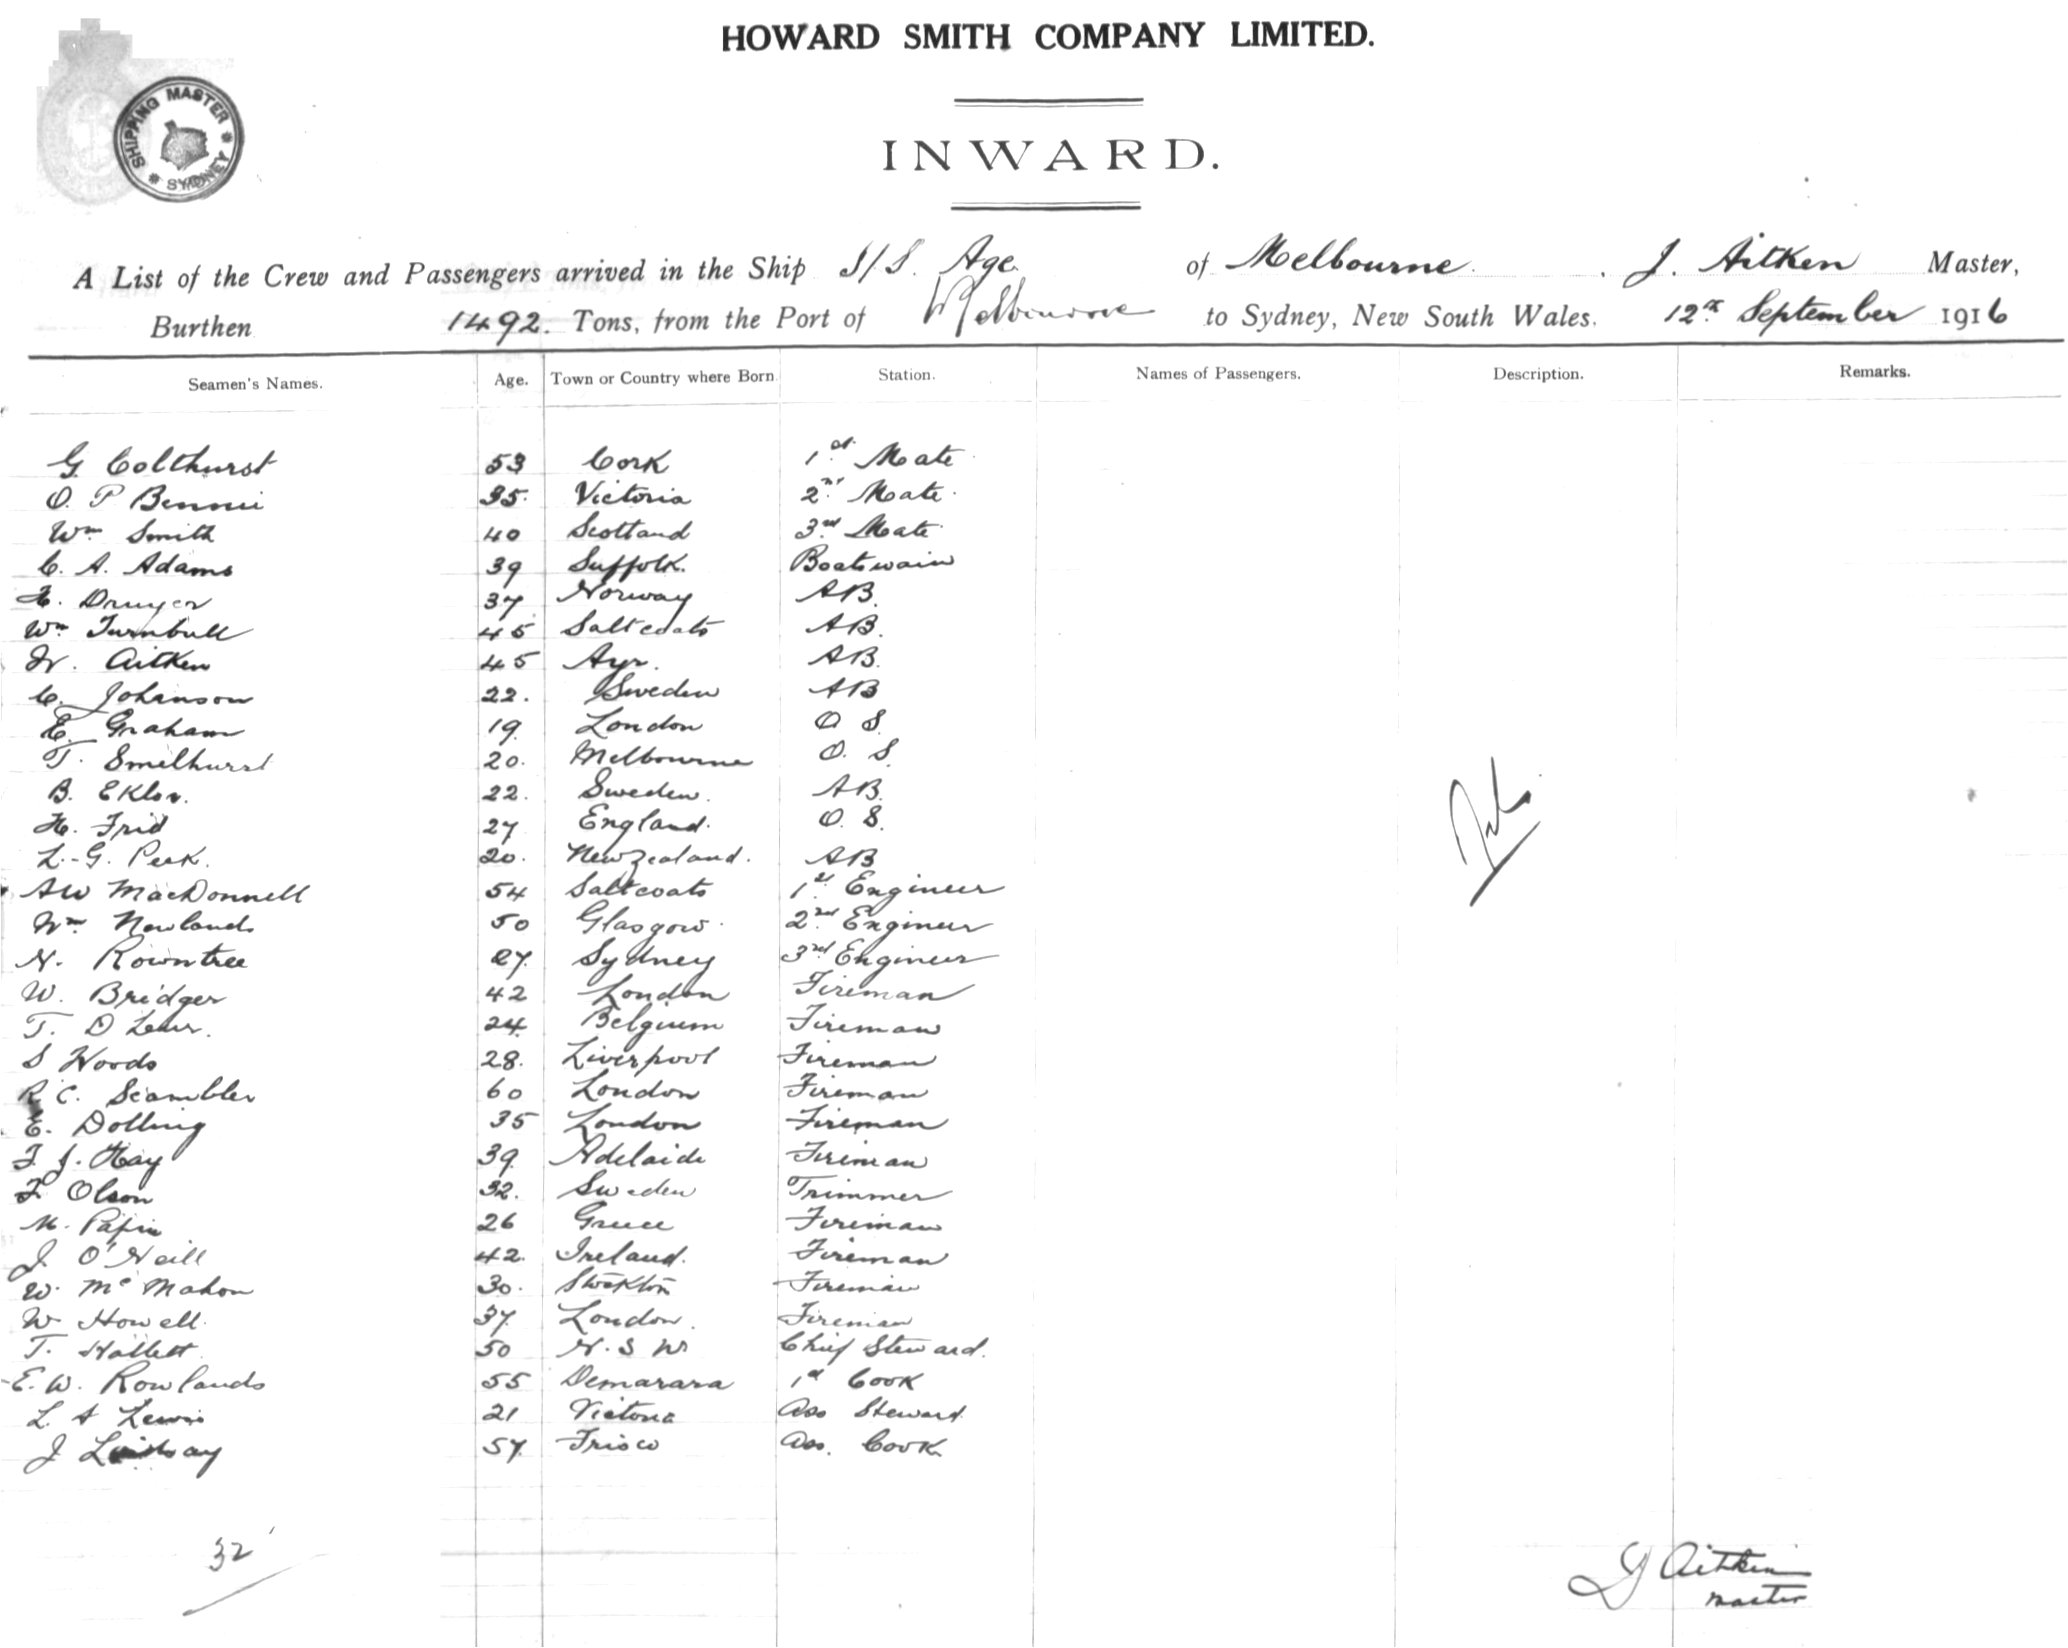 HOWARD SMITH COMPANY LIMITED.
SHIPPING MASTER
SYDNEY
INWARD.
A List of the Crew and Passengers arrived in the Ship S/S. Age. of Melbourne. J. Aitken Master,
Burthen 1492. Tons, from the Port of Melbourne to Sydney, New South Wales. 12th September 1916
Seamen's Names. Age. Town or Country where Born. Station. Names of Passengers. Description. Remarks.
G Colthurst 53 Cork 1st Mate
O. P Bennie 35. Victoria 2nd Mate.
Wm Smith 40 Scotland 3rd Mate
C. A. Adams 39 Suffolk. Boatswain
Druyer 37 Norway AB.
Wm Turnbull 45 Saltcoats AB.
Aitken 45 Ayr. AB.
C. Johanson 22. Sweden AB
E. Graham 19. London O S.
T. Smelhurst 20. Melbourne O. S.
B. Eklov. 22. Sweden. AB.
H. Frid 27 England. O. S.
L. G. Peek. 20. New Zealand. AB
AW MacDonnell 54 Saltcoats 1st Engineer
Wm Newlands 50 Glasgow. 2nd Engineer
N. Rowntree 27. Sydney 3rd Engineer
W. Bridger 42 London Fireman
T. D 24. Belgium Fireman
S Woods 28. Liverpool Fireman
R. C. Scambler 60 London Fireman
E. Dolling 35 London Fireman
F. J. Hay 39. Adelaide Fireman
F Olson 32. Sweden Trimmer
M. Papin 26 Greece Fireman
J. O'Neill 42. Ireland. Fireman
W. Mc Mahon 30. Stockton Fireman
W Howell. 37. London. Fireman
T. Hallett. 50 N. S W Chief Steward.
E. W. Rowlands 55 Demarara 1st Cook
L. A Lewis 21 Victoria Ass Steward.
J Lindsay 57. Frisco Ass. Cook.
32
J Aitken
Master